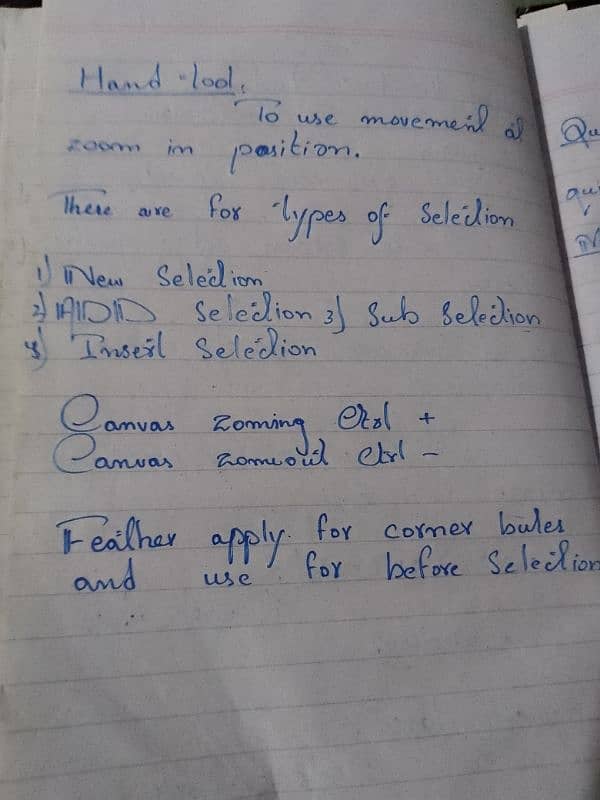 Hand tool.
To use movement at
zoom in position.
There are for types of Selection
1) New Selection
2) ADD Selection 3) Sub Selection
4) Insert Selection
Canvas zoming Ctrl +
Canvas zomeout Ctrl -
Feather apply for corner bules
and use for before Selection
Qu
qui